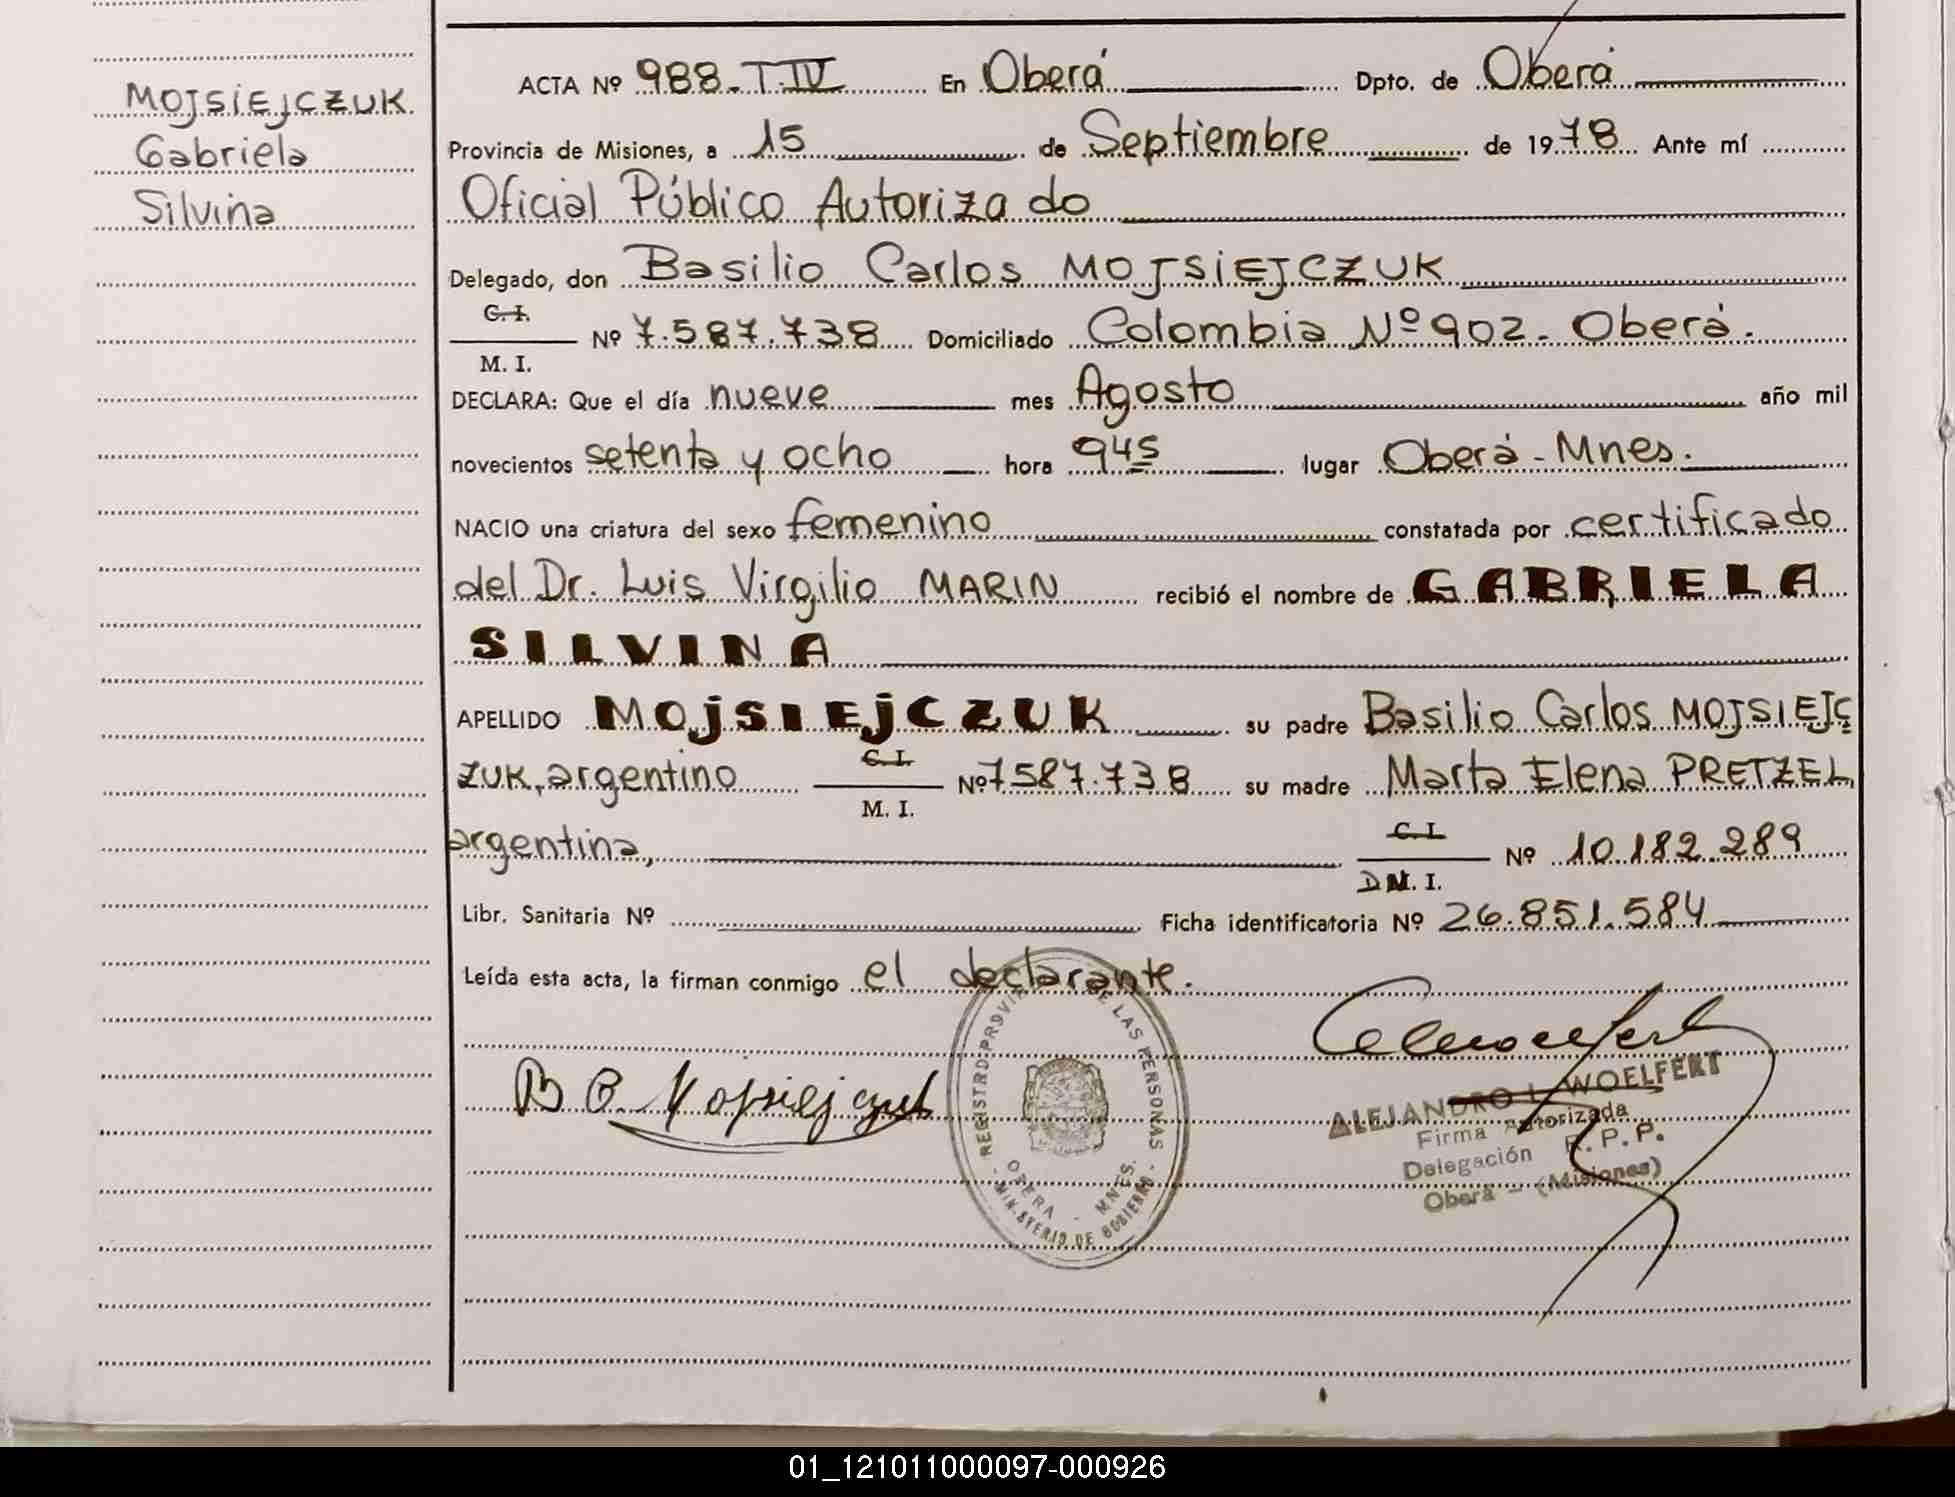 MOJSIEJCZUK
Gabriela
Silvina
ACTA Nº 988-T.IV En Oberá Dpto. de Oberá
Provincia de Misiones, a 15 de Septiembre de 1978 Ante mí
Oficial Público Autorizado
Delegado, don Basilio Carlos MOJSIEJCZUK
C. I.
Nº 7.587.738 Domiciliado Colombia Nº 902- Oberá.
M. I.
DECLARA: Que el día nueve mes Agosto año mil
novecientos setenta y ocho hora 945 lugar Oberá-Mnes.
NACIO una criatura del sexo femenino constatada por certificado
del Dr. Luis Virgilio MARIN recibió el nombre de GABRIELA
SILVINA
APELLIDO MOjSIEjCZUK su padre Basilio Carlos MOJSIEJC
ZUK, argentino C. I. Nº 7587.738 su madre Marta Elena PRETZEL,
M. I.
argentina, C. I. Nº 10.182.289
DM. I.
Libr. Sanitaria Nº Ficha identificatoria Nº 26.851.584
Leída esta acta, la firman conmigo el declarante.
B C. Mojsiejczuk
REGISTRO PROVIN DE LAS PERSONAS
OBERA - MNES.
- MINISTERIO DE GOBIERNO -
ALEJANDRO L. WOELFERT
Firma Autorizada
Delegación R. P. P.
Oberá - (Misiones)
01_121011000097-000926